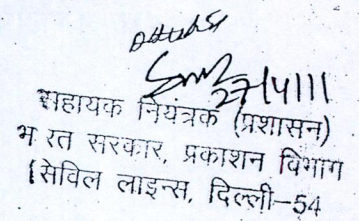 27/4/11
सहायक नियंत्रक (प्रशासन)
भ रत सरकार, प्रकाशन विभाग
सिविल लाइन्स, दिल्ली-54